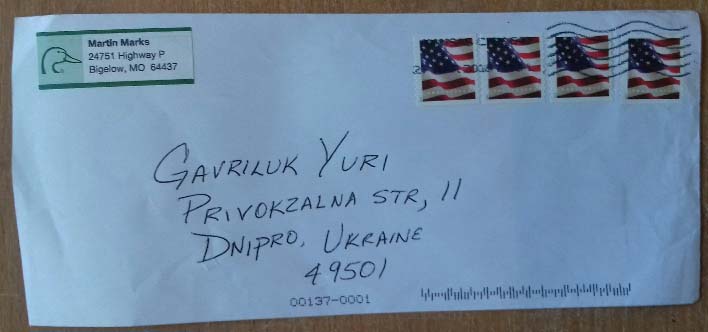 Martin Marks
24751 Highway P
Bigelow, MO 64437
GAVRILUK YURI
PRIVOKZALNA STR, 11
DNIPRO, UKRAINE
49501
00137-0001